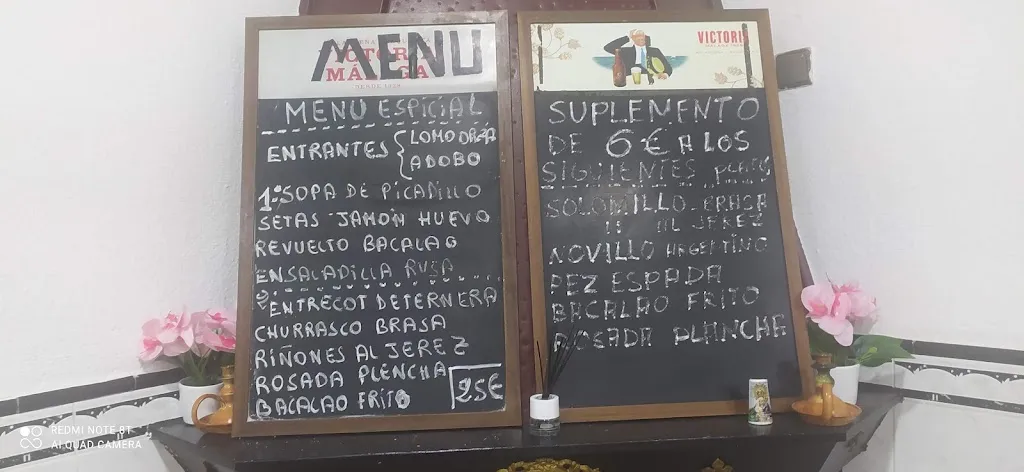 MENU
VICTORIA
MÁLAGA
DESDE 1928
MENU ESPICIAL
ENTRANTES { LOMO ORZA
ADOBO
1º SOPA DE PICADILLO
SETAS JAMON HUEVO
REVUELTO BACALAO
ENSALADILLA RUSA
2º ENTRECOT DE TERNERA
CHURRASCO BRASA
RIÑONES AL JEREZ
ROSADA PLENCHA
BACALAO FRITO
25€
VICTORIA
SUPLEMENTO
DE 6€ A LOS
SIGUIENTES PLATOS
SOLOMILLO BRASA
" AL JEREZ
NOVILLO ARGENTINO
PEZ ESPADA
BACALAO FRITO
ROSADA PLANCHA
REDMI NOTE 8T
AI QUAD CAMERA